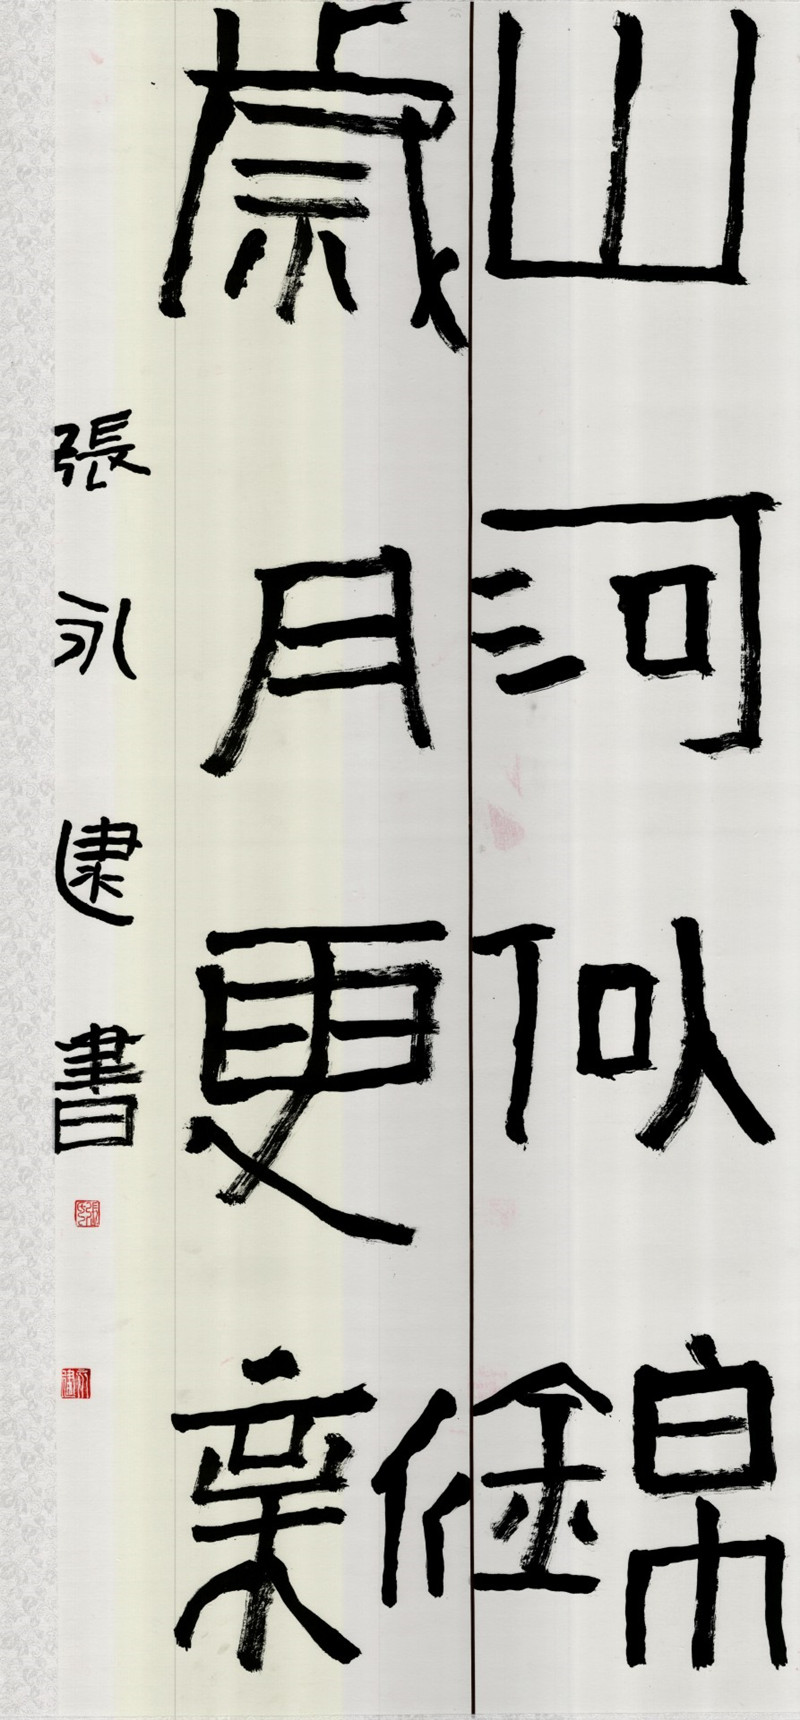 山河似錦
歲月更新
張永建書